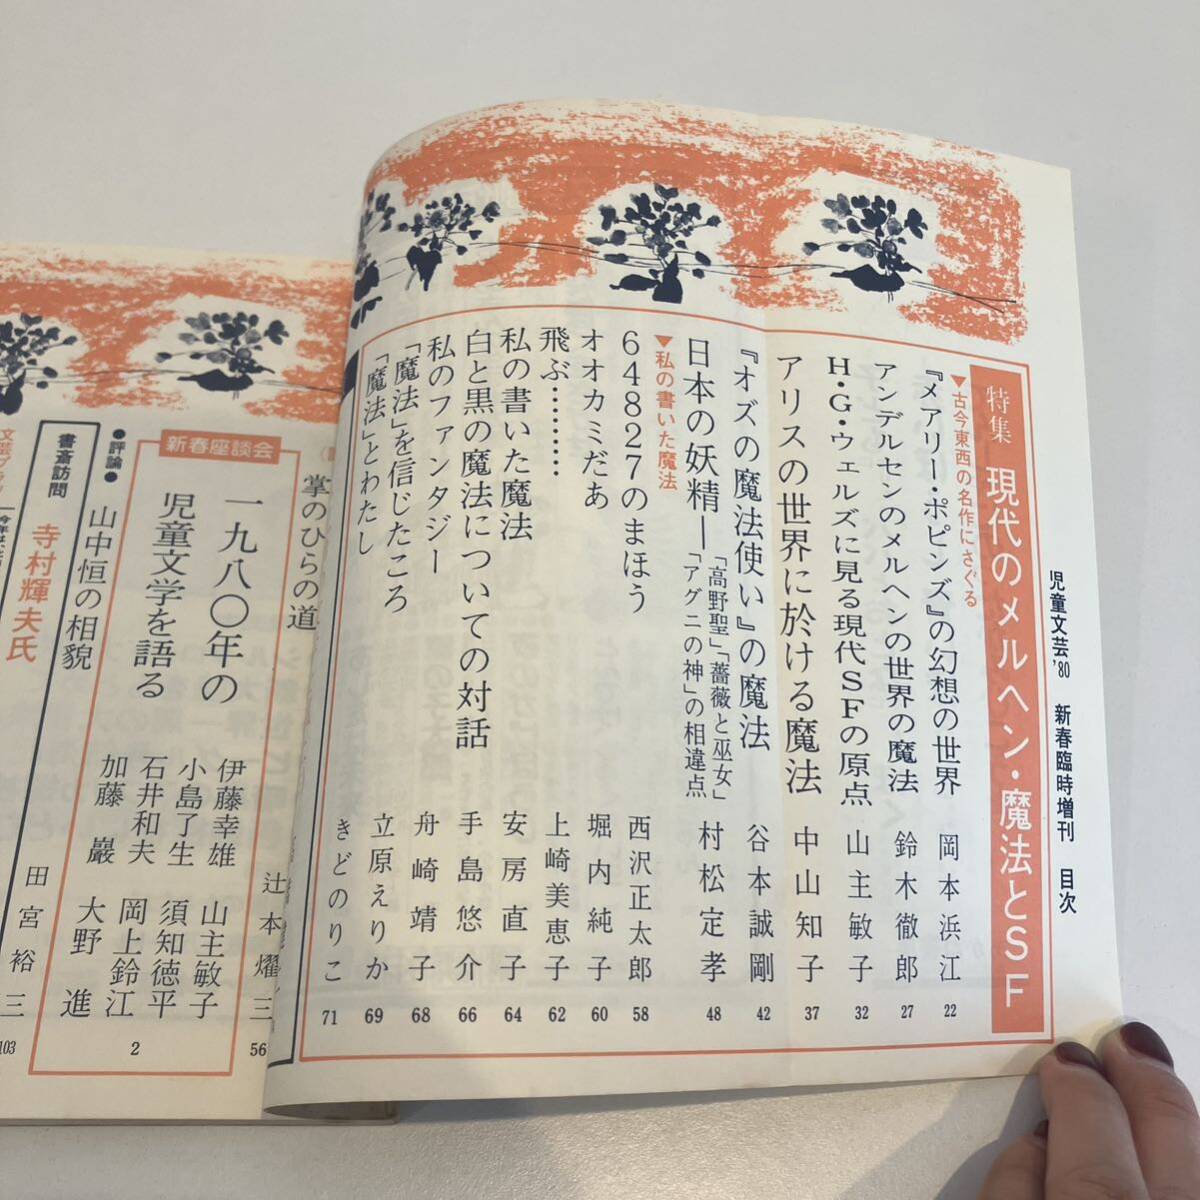 児童文芸'80 新春臨時増刊 目次
特集 現代のメルヘン・魔法とSF
▼古今東西の名作にさぐる
『メアリー・ポピンズ』の幻想の世界 岡本浜江 22
アンデルセンのメルヘンの世界の魔法 鈴木徹郎 27
H・G・ウェルズに見る現代SFの原点 山主敏子 32
アリスの世界に於ける魔法 中山知子 37
『オズの魔法使い』の魔法 谷本誠剛 42
日本の妖精―「高野聖」「薔薇と巫女」「アグニの神」の相違点 村松定孝 48
▼私の書いた魔法
64827のまほう 西沢正太郎 58
オオカミだあ 堀内純子 60
飛ぶ……… 上崎美恵子 62
私の書いた魔法 安房直子 64
白と黒の魔法についての対話 手島悠介 66
私のファンタジー 舟崎靖子 68
「魔法」を信じたころ 立原えりか 69
「魔法」とわたし きどのりこ 71
掌のひらの道 辻本耀三 56
新春座談会
一九八〇年の
児童文学を語る
伊藤幸雄 山主敏子
小島了生 須知徳平
石井和夫 岡上鈴江
加藤巖 大野進
2
●評論●
山中恒の相貌 田宮裕三 103
書斎訪問 寺村輝夫氏